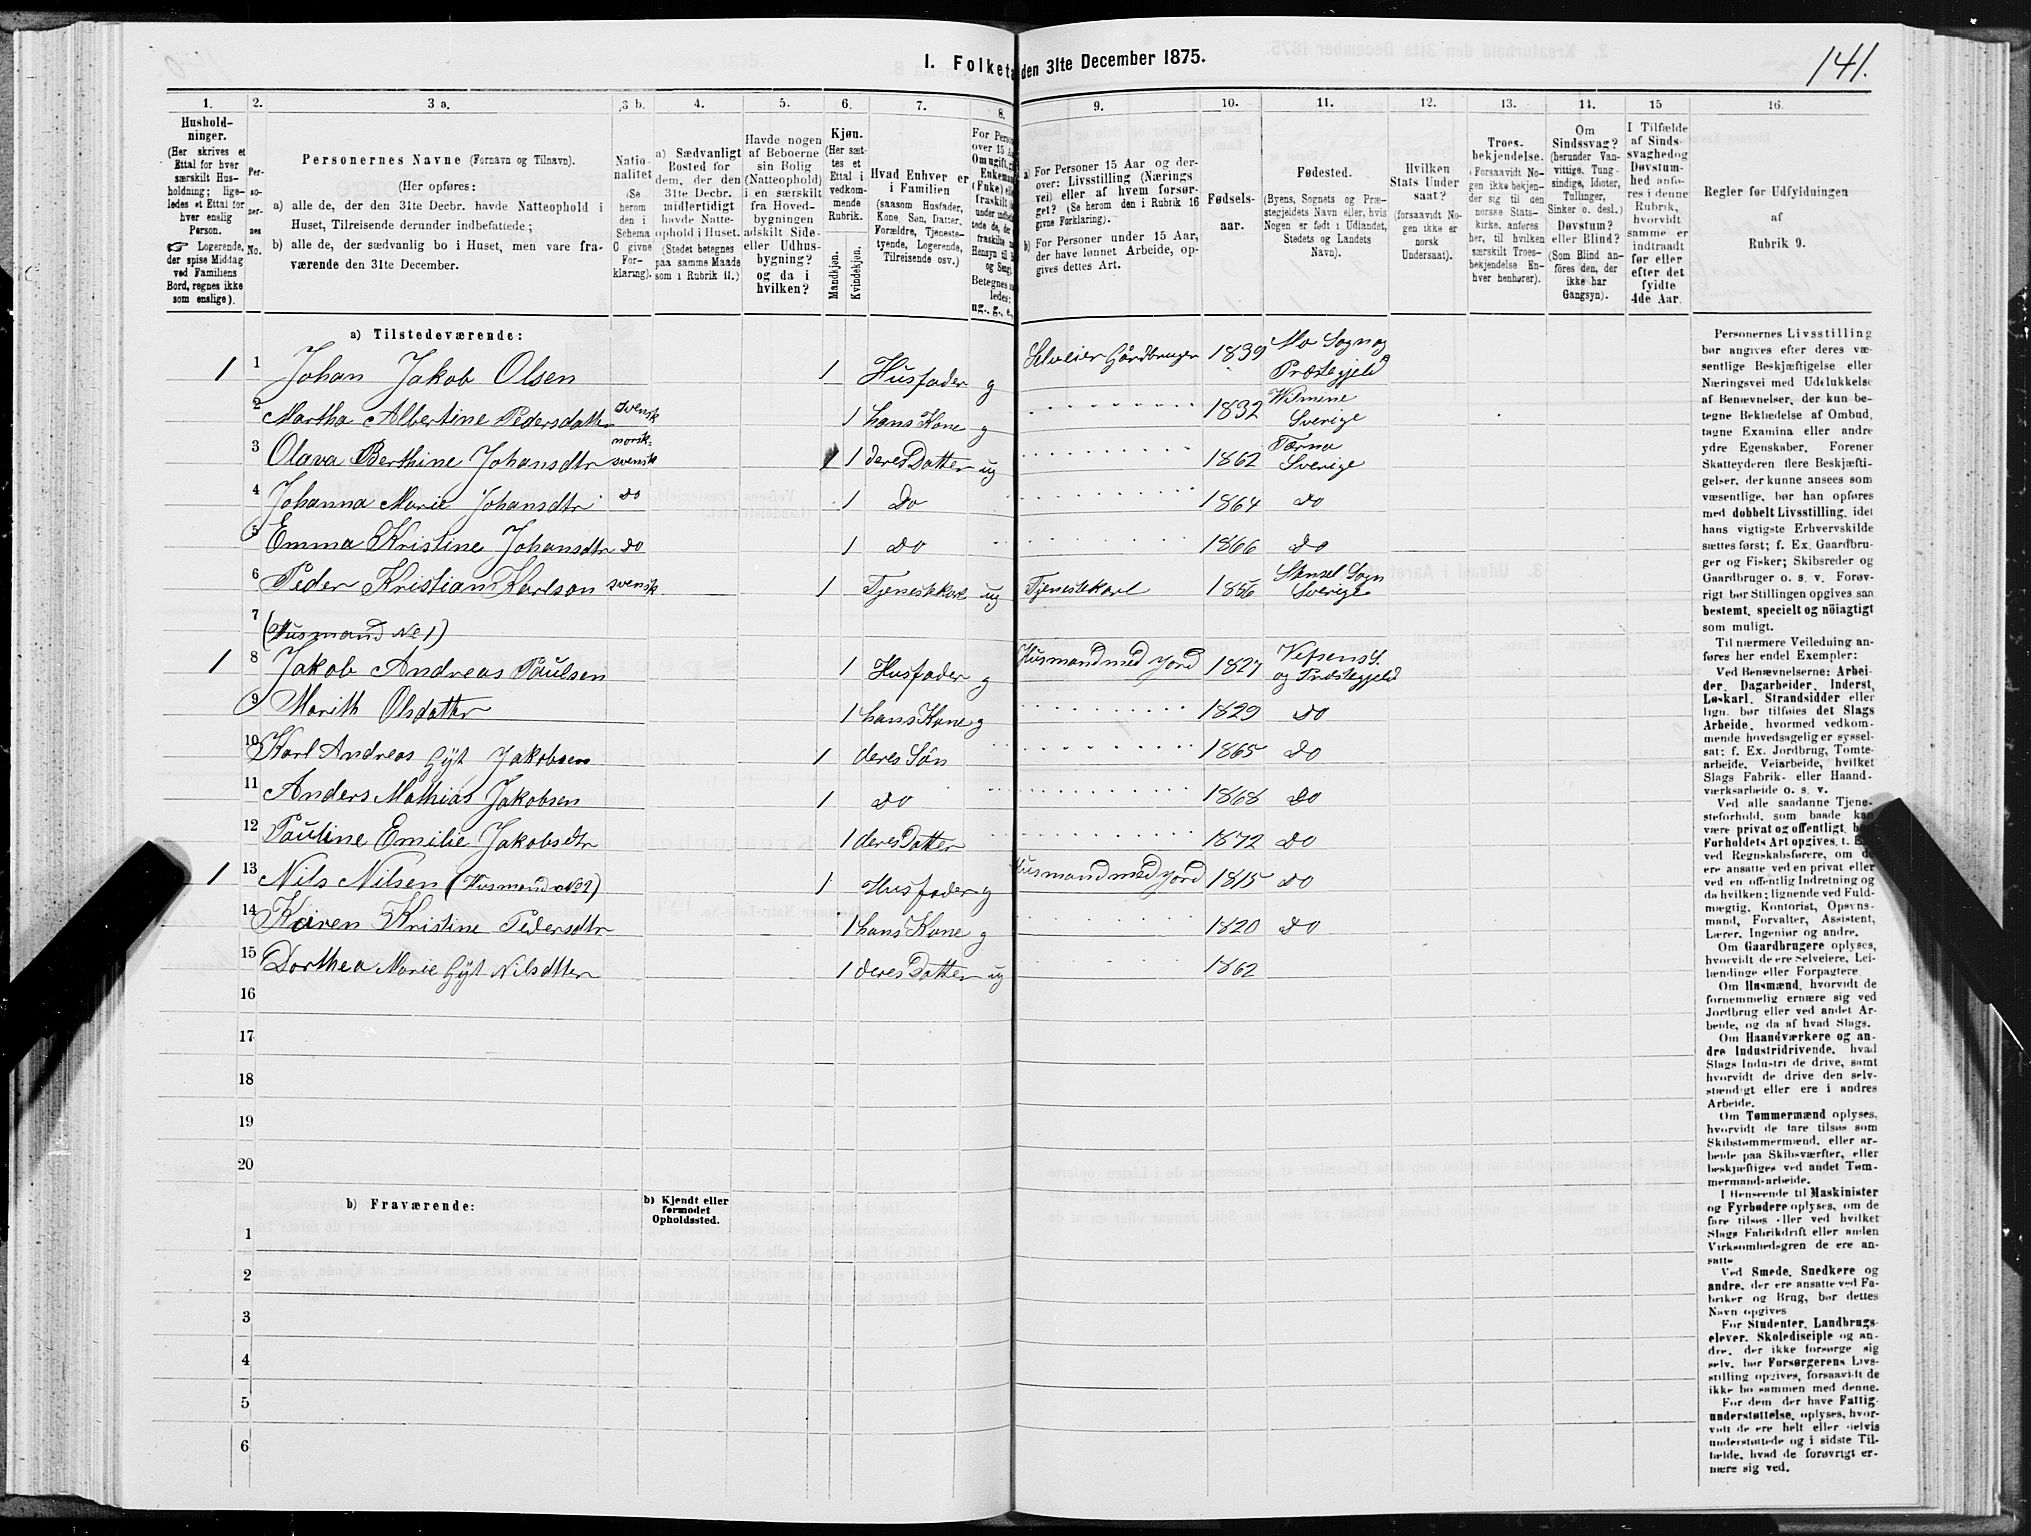 141.
1. Folketæ den 31te December 1875.
1. 2. 3 a. 3 b. 4. 5. 6. 7. 8. 9. 10. 11. 12. 13. 14. 15 16.
Hushold-
ninger.
(Her skrives et
Ettal for hver
særskilt Hus-
holdning; lige-
ledes et Ettal for
hver enslig
Person.
☞ Logerende,
der spise Middag
ved Familiens
Bord, regnes ikke
som enslige).
Per-
so-
ner-
nes
No.
Personernes Navne (Fornavn og Tilnavn).
(Her opføres:
a) alle de, der den 31te Decbr. havde Natteophold i
Huset, Tilreisende derunder indbefattede;
b) alle de, der sædvanlig bo i Huset, men vare fra-
værende den 31te December.
Natio-
nalitet
(Se
herom
den i
Schema
C givne
For-
klaring).
a) Sædvanligt
Bosted for
dem, der den
31te Decbr.
midlertidigt
havde Natte-
ophold i Huset.
(Stedet betegnes
paa samme Maade
som i Rubrik 11.)
Havde nogen
af Beboerne
sin Bolig
(Natteophold)
i en særskilt
fra Hoved-
bygningen
adskilt Side-
eller Udhus-
bygning?
og da i
hvilken?
Kjøn.
(Her sæt-
tes et
Ettal i
vedkom-
mende
Rubrik.
Mandkjøn.
Kvindekjøn.
Hvad Enhver er
i Familien
(saasom Husfader,
Kone, Søn, Datter,
Forældre, Tjeneste-
tyende, Logerende,
Tilreisende osv.)
For Pers
over 15 A
Om ugift,
Enkema
(Fuke) e
fraskilt
ledes;
ug., g., e.,
a) For Personer 15 Aar og der-
over: Livsstilling (Nærings
vei) eller af hvem forsør-
get? (Se herom den i Rubrik 16
givne Forklaring).
b) For Personer under 15 Aar,
der have lønnet Arbeide, op-
gives dettes Art.
Fødsels-
aar.
Fødested.
(Byens, Sognets og Præ-
stegjeldets Navn eller, hvis
Nogen er født i Udlandet,
Stedets og Landets
Navn).
Hvilken
Stats Under
saat?
(forsaavidt No-
gen ikke er
norsk
Undersaat).
Troes-
bekjendelse.
(Forsaavidt No-
gen ikke bekjen-
der sig til den
norske Stats-
kirke, anføres
her, til hvilken
særskilt Troes-
bekjendelse En-
hver henhører).
Om
Sindssvag?
(herunder Van-
vittige, Tung-
sindige, Idioter,
Tullinger,
Sinker o. desl.)
Døvstum?
eller Blind?
(Som Blind an-
føres den, der
ikke har
Gangsyn).
I Tilfælde
af Sinds-
svaghed og
Døvstum-
hed anfø-
res i denne
Rubrik,
hvorvidt
samme er
indtraadt
før eller
efter det
fyldte
4de Aar.
Regler for Udfyldningen
af
Rubrik 9.
a) Tilstedeværende:
1 1 Johan Jakob Olsen 1 Husfader g Selveier Gårdbruger 1839 Mo Sogn og Præstegjeld
2 Martha Albertine Pedersdatter svensk 1 hans Kone g 1832 Wilmine Sverige
3 Olava Berthine Johansdtr norsk-svensk 1 deres Datter ug 1862 Tærna Sverige
4 Johanna Marie Johansdtr do 1 Do 1864 do
5 Emma Kristine Johansdtr do 1 do 1866 do
6 Peder Kristian Karlson svensk 1 Tjenestekarl ug Tjenestekarl 1856 Stensel Sogn Sverige
7 (Husmand No 1)
1 8 Jakob Andreas Paulsen 1 Husfader g Husmand med Jord 1827 Vefsens S. og Præstegjeld
9 Marith Olsdatter 1 hans Kone g 1829 do
10 Karl Andreas Gjt Jakobsen 1 deres Sön 1865 do
11 Anders Mathias Jakobsen 1 do 1868 do
12 Pauline Emilie Jakobsdtr 1 deres Datter 1872 do
1 13 Nils Nilsen (Husmand No 2) 1 Husfader g Husmand med Jord 1815 do
14 Karen Kristine Pedersdtr 1 hans Kone g 1820 do
15 Dorthea Marie Gjt Nilsdtter 1 deres Datter ug 1862
16
17
18
19
20
b) Fraværende:
b) Kjendt eller
formodet
Opholdssted.
1
2
3
4
5
6
Personernes Livsstilling
bør angives efter deres væ-
sentlige Beskjæftigelse eller
Næringsvei med Udelukkelse
af Benævnelser, der kun be-
tegne Beklædelse af Ombud,
tagne Examina eller andre
ydre Egenskaber. Forener
Skatteyderen flere Beskjæfti-
gelser, der kunne ansees som
væsentlige, bør han opføres
med dobbelt Livsstilling, idet
hans vigtigste Erhvervskilde
sættes først; f. Ex. Gaardbru-
ger og Fisker; Skibsreder og
Gaardbruger o. s. v. Forøv-
rigt bør Stillingen opgives saa
bestemt, specielt og nöiagtigt
som muligt.
Til nærmere Veiledning an-
føres her endel Exempler:
Ved Benævnelserne: Arbei-
der, Dagarbeider, Inderst,
Løskarl, Strandsidder eller
lign. bør tilføies det Slags
Arbeide, hvormed vedkom-
mende hovedsagelig er syssel-
sat; f. Ex. Jordbrug, Tomte-
arbeide, Veiarbeide, hvilket
Slags Fabrik- eller Haand-
værksarbeide o. s. v.
Ved alle saadanne Tjene-
steforhold, som baade kan
være privat og offentligt, b
Forholdets Art opgives, t. E
ved Regnskabsførere, om de
ere ansatte ved en privat eller
ved en offentlig Indretning og
da hvilken; lignende ved Fuld-
mægtig, Kontorist, Opsyns-
mand, Forvalter, Assistent,
Lærer, Ingeniør og andre.
Om Gaardbrugere oplyses,
hvorvidt de ere Selveiere, Lei-
lændinge eller Forpagtere
Om Husmænd, hvorvidt de
fornemmelig ernære sig ved
Jordbrug eller ved andet Ar-
beide, og da af hvad Slags.
Om Haandværkere og an-
dre Industridrivende, hvad
Slags Industri de drive, samt
hvorvidt de drive den selv-
stændigt eller ere i andres
Arbeide.
Om Tømmermænd oplyses,
hvorvidt de fare tilsøs som
Skibstømmermænd, eller ar-
beide paa Skibsværfter, eller
beskjæftiges ved andet Tøm-
mermand-arbeide.
I Henseende til Maskinister
og Fyrbødere oplyses, om de
fare tilsøs eller ved hvilket
Slags Fabrikdrift eller anden
Virksomhedsgren de ere an-
satte
Ved Smede, Snedkere og
andre, der ere ansatte ved Fa-
briker og Brug, bør dettes
Navn opgives
For Studenter, Landbrugs-
elever, Skoledisciple og an-
dre, der ikke forsørge sig
selv, bør Forsørgerens Livs-
stilling opgives, forsaavidt de
ikke bo sammen med denne.
For dem, der have Fattig-
understøttelse, oplyses, hvor-
vidt de ere helt eller delvis
understøttede og i sidste Til-
fælde, hvad de forøvrigt er-
nære sig ved.